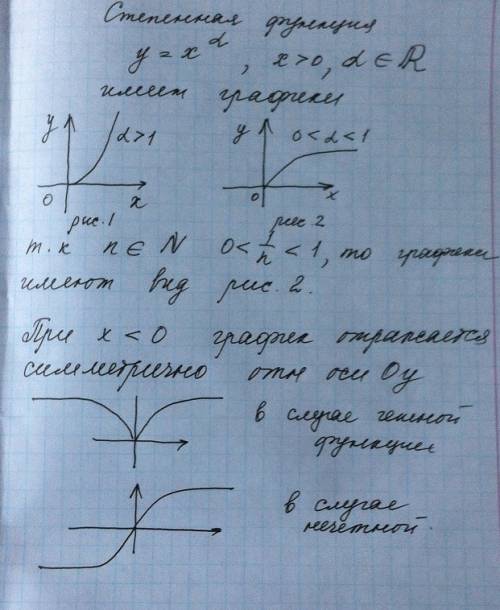 Степенная функция
y = x^α, x>0, α ∈ ℝ
имеет графики
y α>1
0 x
рис. 1
y 0<α<1
0 x
рис. 2
т.к n ∈ N 0 < 1/n < 1, то графики
имеют вид рис. 2.
При x < 0 график отражается
симметрично отн оси Oy
в случае четной
функции
в случае
нечетной.